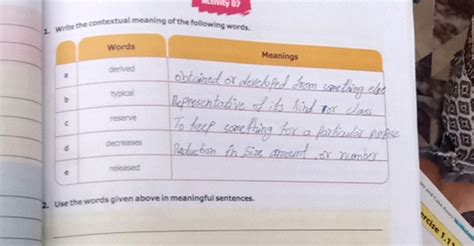 Activity 07
1. Write the contextual meaning of the following words.
Words Meanings
a derived obtained or developed from something else
b typical Representative of its kind or class
c reserve To keep something for a particular purpose
d decreases Reduction in size amount, or number
e released
2. Use the words given above in meaningful sentences.
ercise 1.1